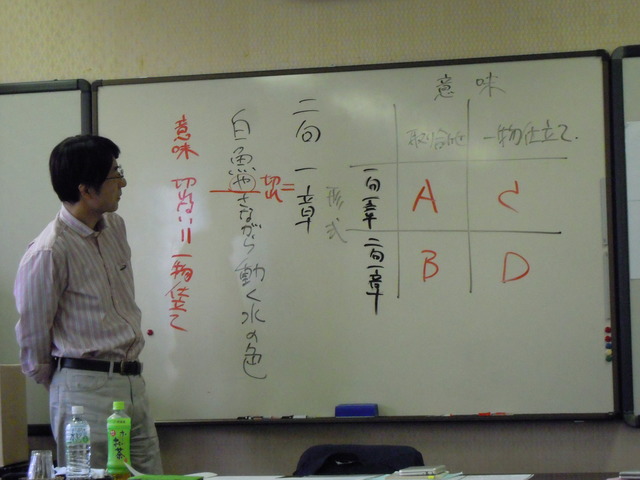 意味
取り合わせ
一物仕立て.
一句一章
A
C
二句一章
B
D
形式
二句一章
白魚やさながら動く水の色
切れ=
意味 切れない=一物仕立て
お茶